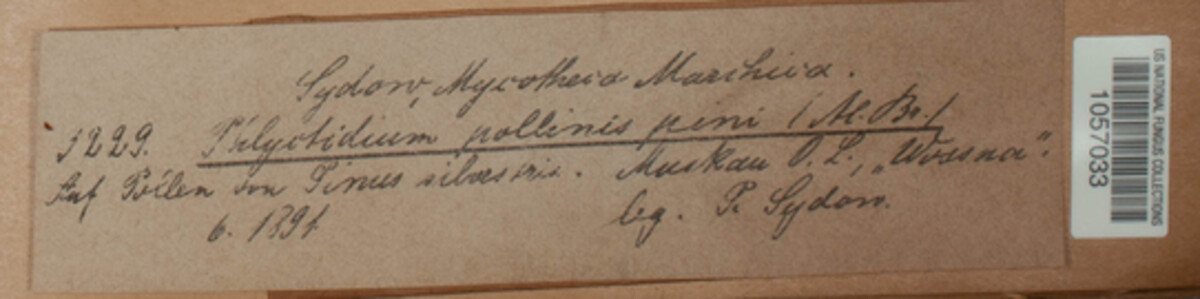 Sydow, Mycotheca Marchica.
3229. Phlyctidium pollinis pini (Al. Br.)
Auf Pollen von Pinus silvestris. Muskau O. L., „Wussina".
6. 1891 leg. P. Sydow.
US NATIONAL FUNGUS COLLECTIONS
1057033